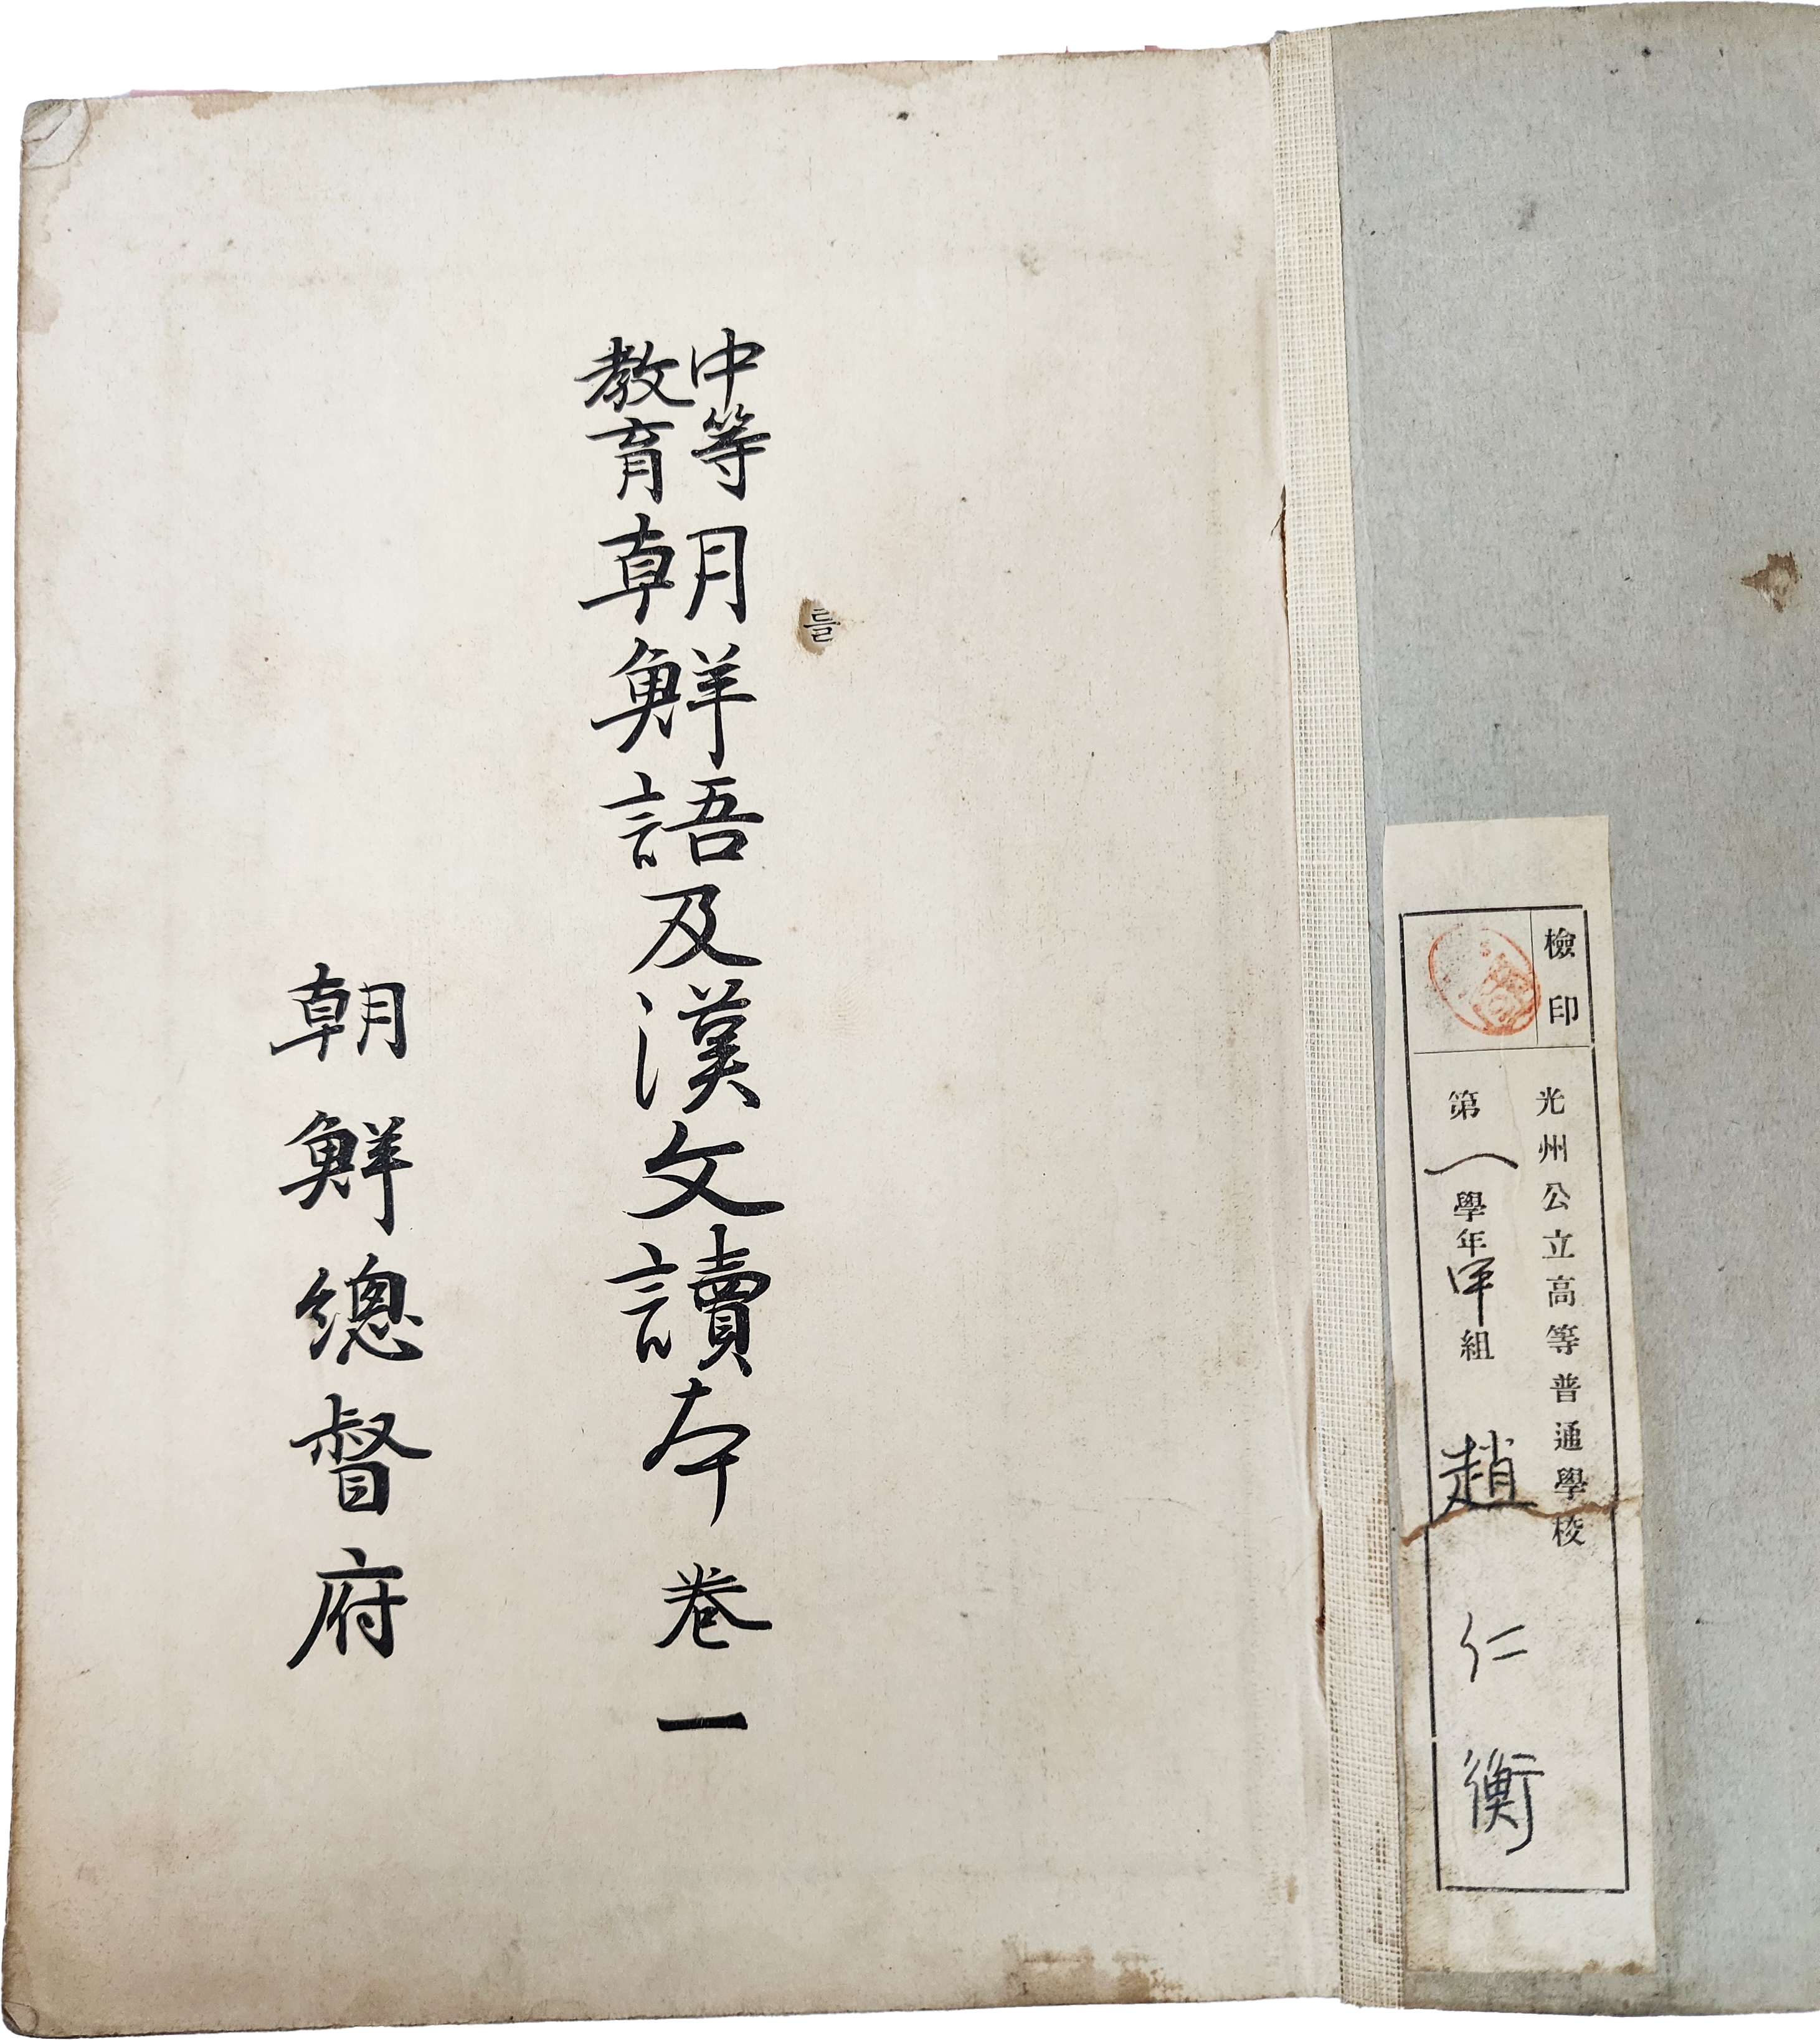 檢印
光州公立高等普通學校
第一學年組 趙仁衡
中等
教育
朝鮮語及漢文讀本 卷一
朝鮮總督府